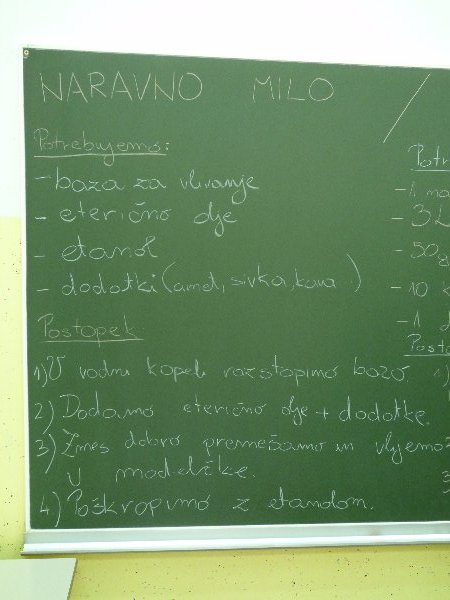 NARAVNO MILO
Potrebujemo:
- baza za vlivanje
- eterično olje
- etanol
- dodatki (amet, sivka, kava)
Postopek
1) V vodni kopeli raztopimo bazo.
2) Dodamo eterično olje + dodatke.
3) Zmes dobro premešamo in vlijemo
v modelčke.
4) Poškropimo z etanolom.
Potr
- 1
- 3L
- 50g
- 10
- 1
Posto
1)
3